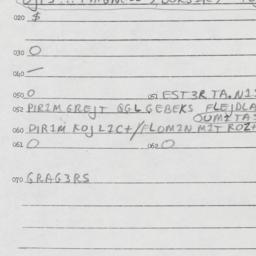 020 $
030 O
040 —
050 O 051 EST3R TA.NIS
052 PIRIM GREJT QGL GEBEKS FLEJDLA
OUMITAS
060 PIRIM KOJLIC+//FLOMIN MIT ROZ
061 O 062 O
070 GRAG3RS